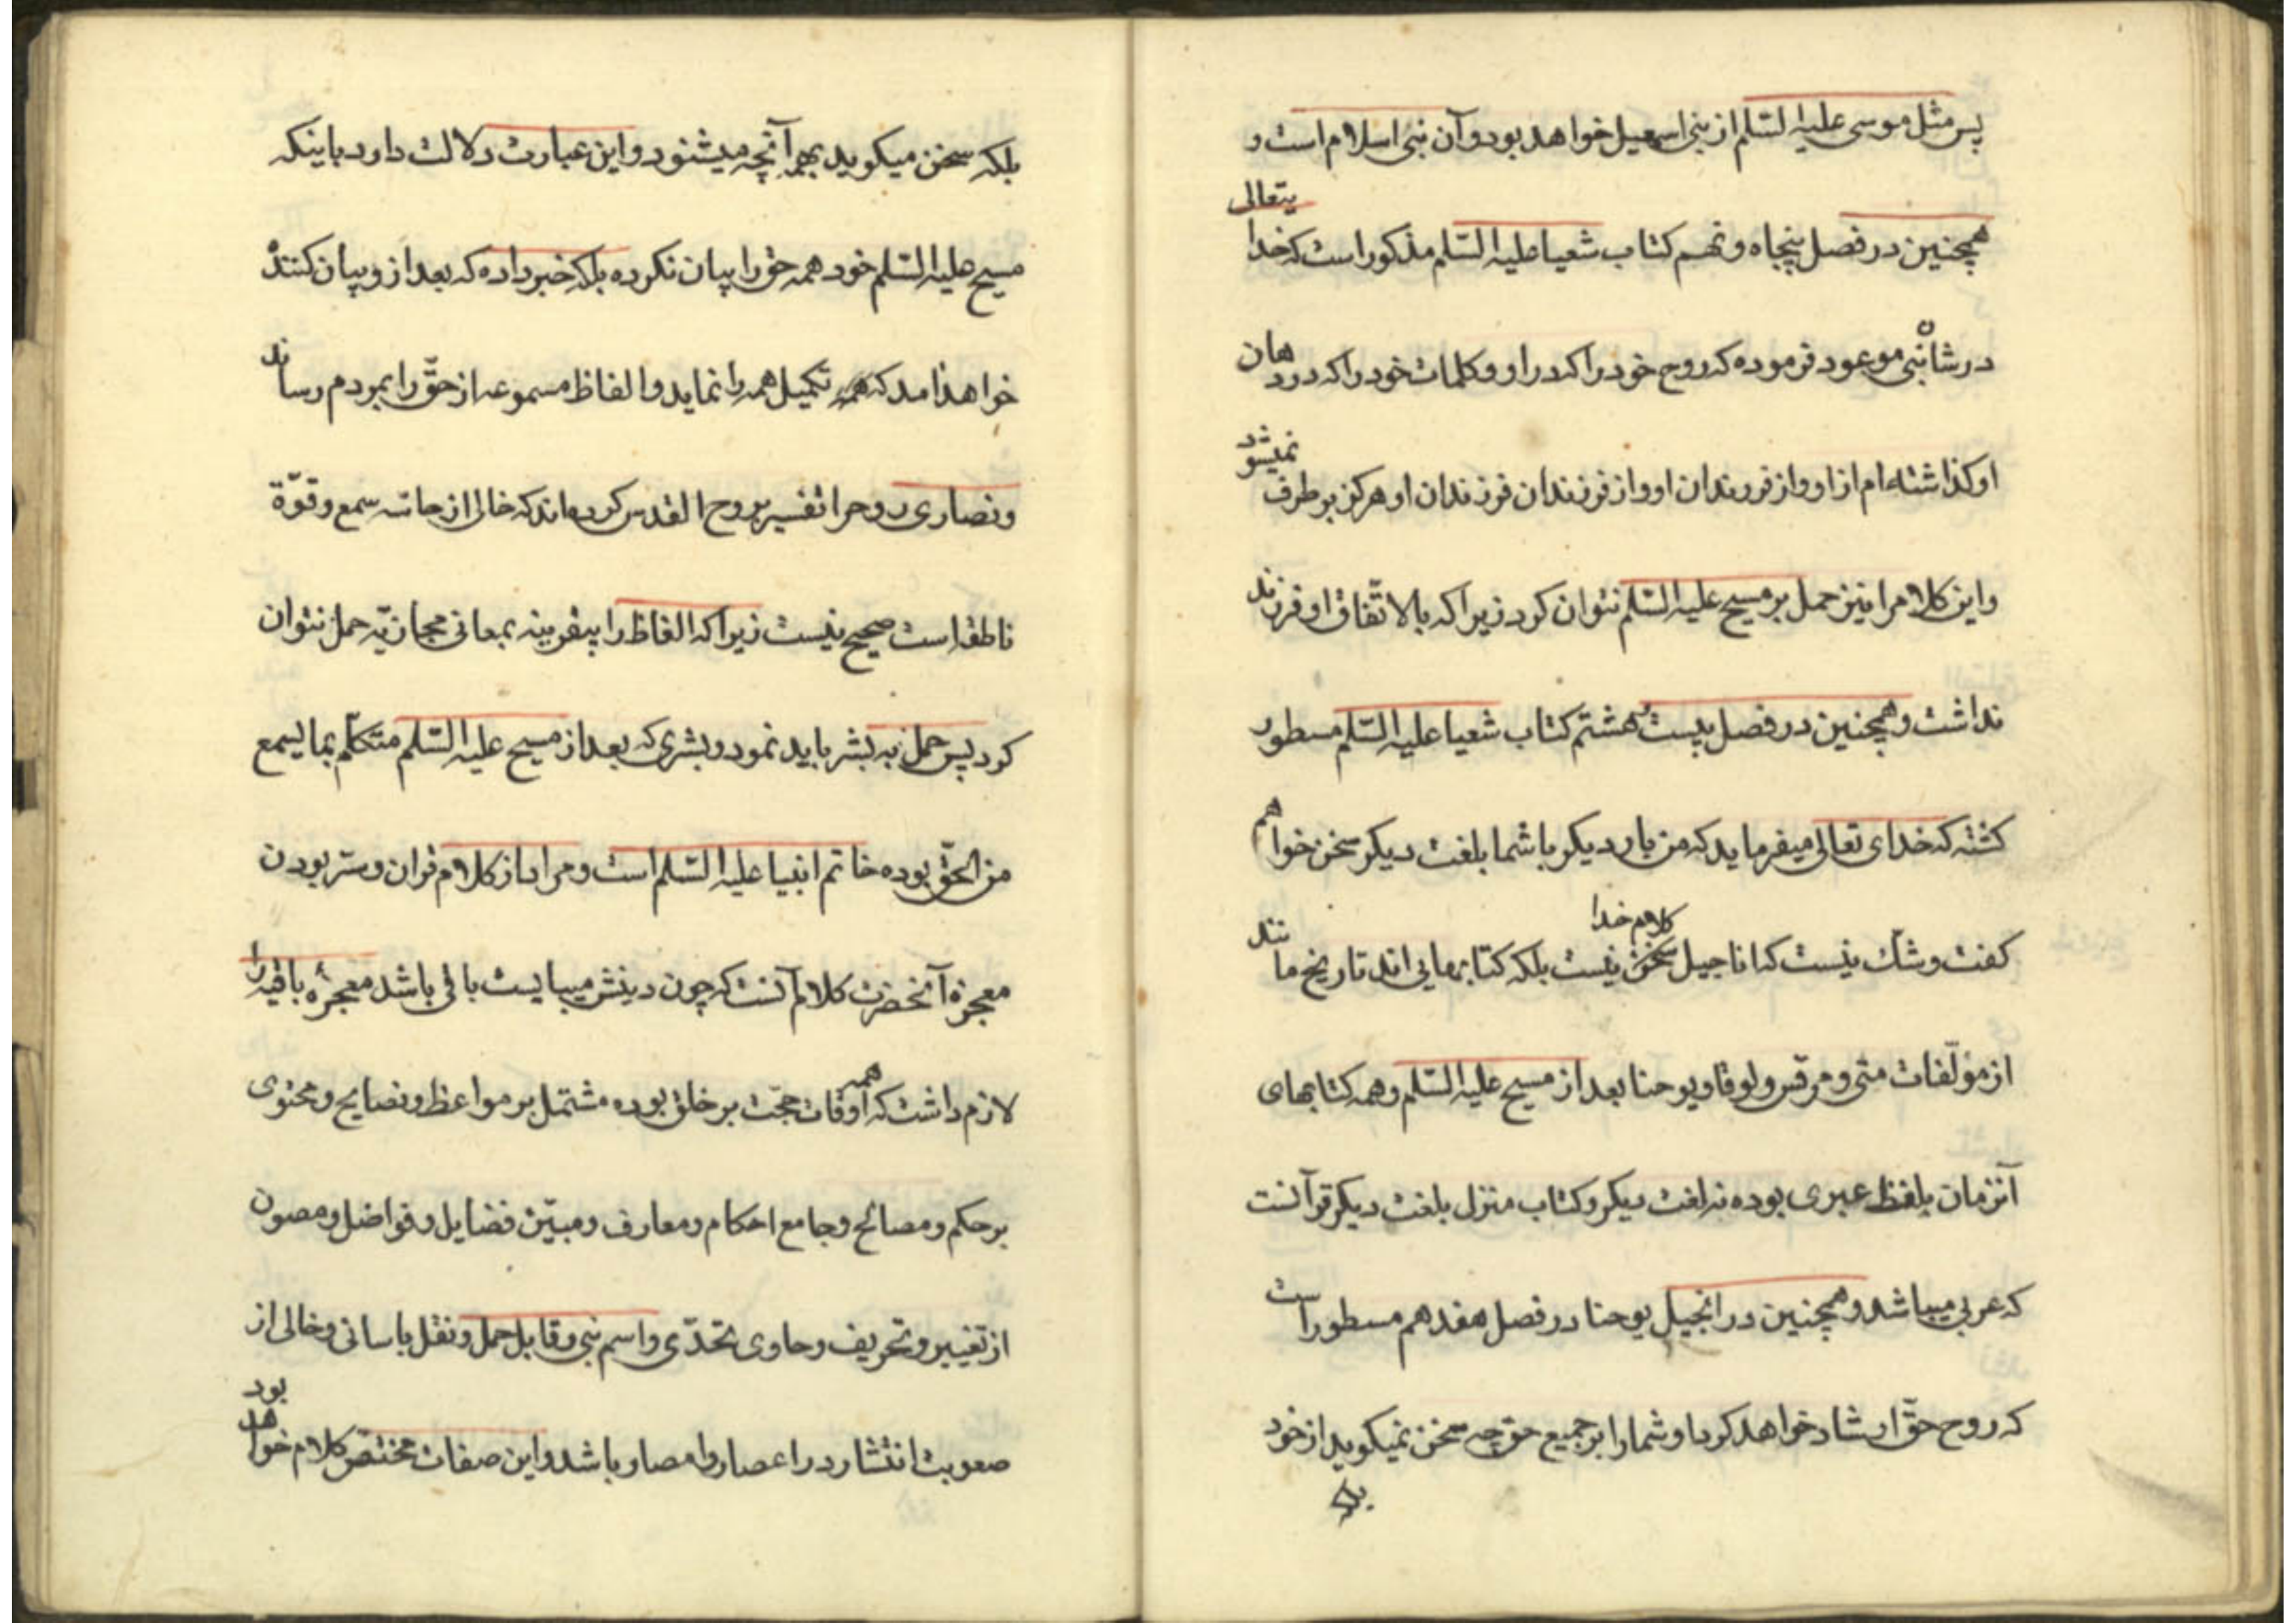 پس مثل موسی علیه السّلم از بنی اسمعیل خواهد بود و آن نبی اسلام است و
همچنین در فصل پنجاه و نهم کتاب شعیا علیه السّلم مذکور است که خدا یتعالی
در شان نبی موعود فرموده که روح خود را که در او و کلمات خود را که در دهان
او کذاشته‌ام از او و از فرزندان او و از فرزندان فرزندان او هرکز برطرف نمیشود
و این کلام را نیز حمل بر مسیح علیه السّلم نتوان کرد زیرا که بالاتّفاق او فرزند
نداشت و همچنین در فصل بیست و هشتم کتاب شعیا علیه السّلم مسطور
کشته که خدای تعالی میفرماید که من بار دیکر با شما بلغت دیکر سخن خواهم
کفت و شک نیست که اناجیل کلام خدا نیست بلکه کتابهایی‌اند تاریخ مانند
از مؤلّفات متی و مرقس و لوقا و یوحنا بعد از مسیح علیه السّلم و همه کتابهای
آنزمان بلفظ عبری بوده نه لغت دیکر و کتاب منزل بلغت دیکر قرآنست
که عربی میباشد و همچنین در انجیل یوحنا در فصل هفدهم مسطور است
که روح حقّ ارشاد خواهد کرد و شما را بر جمیع حق چه سخن نمیکوید از خود
بلکه
بلکه سخن میکوید بهر آنچه میشنود و این عبارت دلالت دارد باینکه
مسیح علیه السّلم خود همه حق را بیان نکرده بلکه خبر داده که بعد از و بیان کننده
خواهد امد که تکمیل همه را نماید و الفاظ مسموعه از حقّ را بمردم رساند
و نصاری روح را تفسیر بروح القدس کرده‌اند که خالی از حاسّه سمع و قوّة
ناطقه است صحیح نیست زیرا که الفاظ را بیقرینه بمعانی مجازیّه حمل نتوان
کرد پس حمل به بشر باید نمود و بشری که بعد از مسیح علیه السّلم متکلّم بما یسمع
من الحقّ بوده خاتم انبیا علیه السّلم است و مراد از کلام قران و سرّ بودن
معجزه آنحضرت کلام آنست که چون دینش میبایست باقی باشد معجزه باقیه را
لازم داشت که همه اوقات حجّت بر خلق بوده مشتمل بر مواعظ و نصایح و محتوی
بر حکم و مصالح و جامع احکام و معارف و مبیّن فضایل و فواضل و مصون
از تغییر و تحریف و حاوی تحدّی و اسم نبی و قابل حمل و نقل باسانی و خالی از
صعوبت انتشار در اعصار و امصار باشد و این صفات مختصّ کلام خواهد بود